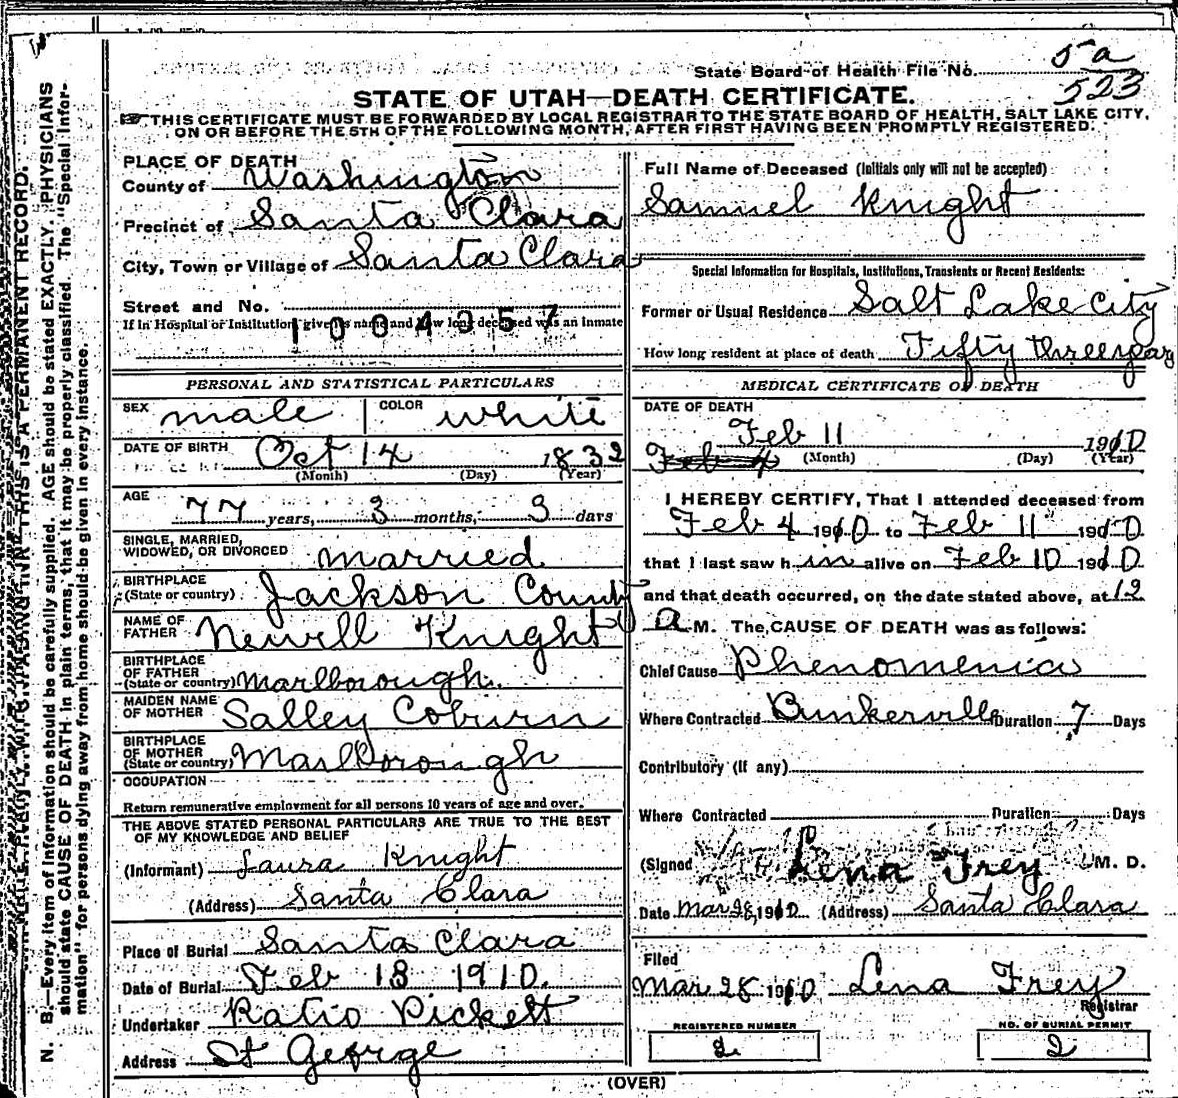 State Board of Health File No. 5a
523
STATE OF UTAH—DEATH CERTIFICATE.
THIS CERTIFICATE MUST BE FORWARDED BY LOCAL REGISTRAR TO THE STATE BOARD OF HEALTH, SALT LAKE CITY,
ON OR BEFORE THE 5TH OF THE FOLLOWING MONTH, AFTER FIRST HAVING BEEN PROMPTLY REGISTERED.
N. B.—Every item of information should be carefully supplied. AGE should be stated EXACTLY. PHYSICIANS
should state CAUSE OF DEATH in plain terms, that it may be properly classified. The "Special Infor-
mation" for persons dying away from home should be given in every instance.
THIS IS A PERMANENT RECORD.
PLACE OF DEATH
County of Washington
Precinct of Santa Clara
City, Town or Village of Santa Clara
Street and No.
If in Hospital or Institution, give its name and how long deceased was an inmate
1004357
PERSONAL AND STATISTICAL PARTICULARS
SEX male COLOR white
DATE OF BIRTH Oct 14 1832
(Month) (Day) (Year)
AGE
77 years, 3 months, 3 days
SINGLE, MARRIED,
WIDOWED, OR DIVORCED married
BIRTHPLACE
(State or country) Jackson County
NAME OF
FATHER Newell Knight
BIRTHPLACE
OF FATHER
(State or country) Marlborough.
MAIDEN NAME
OF MOTHER Salley Coburn
BIRTHPLACE
OF MOTHER
(State or country) Marlborough
OCCUPATION
Return remunerative employment for all persons 10 years of age and over.
THE ABOVE STATED PERSONAL PARTICULARS ARE TRUE TO THE BEST
OF MY KNOWLEDGE AND BELIEF
(Informant) Laura Knight
(Address) Santa Clara
Place of Burial Santa Clara
Date of Burial Feb 13 1910.
Undertaker Ratio Pickett
Address St George
Full Name of Deceased (Initials only will not be accepted)
Samuel Knight
Special Information for Hospitals, Institutions, Transients or Recent Residents:
Former or Usual Residence Salt Lake City
How long resident at place of death Fifty three years
MEDICAL CERTIFICATE OF DEATH
DATE OF DEATH
Feb 11 1910
Feb 4 (Month) (Day) (Year)
I HEREBY CERTIFY, That I attended deceased from
Feb 4 1910 to Feb 11 1910
that I last saw h im alive on Feb 10 1910
and that death occurred, on the date stated above, at 12
A M. The CAUSE OF DEATH was as follows:
Chief Cause Phenomenia
Where Contracted Bunkerville Duration 7 Days
Contributory (if any)
Where Contracted Duration Days
(Signed Lena Frey M. D.
Date Mar 28, 1910 (Address) Santa Clara
Filed
Mar 28 1910 Lena Frey
Registrar
REGISTERED NUMBER NO. OF BURIAL PERMIT
2 2
(OVER)